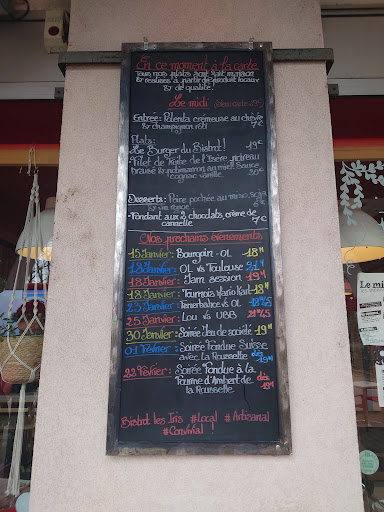 En ce moment à la carte
Tous nos plats sont fait maison
& réalisés à partir de produit locaux
& de qualité!
Le midi
Entrée: Polenta crémeuse au chèvre
& champignon rôti 7€
Plats:
Le Burger du Bistrot! 19€
Filet de truite de l'Isère
cognac vanille
Desserts: Poire pochée au miso, soja
& vin rouge
-Fondant aux 2 chocolats crème de
cannelle 7€
Nos prochains évènements
15 Janvier: Bourgoin - OL 18H
18 Janvier: OL vs Toulouse 21H
18 Janvier: Jam session 19H
18 Janvier: Tournois Mario Kart 18H
23 Janvier: Fenerbahce vs OL
25 Janvier: Lou vs UBB
30 Janvier: Soirée Jeu de société 19H
01 Février: Soirée Fondue Suisse
avec La Rousselle dès 19H
22 Février: Soirée Fondue à la
Fourme d'Ambert de
la Rousselle dès 19H
Bistrot les Iris #Local #Artisanal
#Convivial !
Le mi